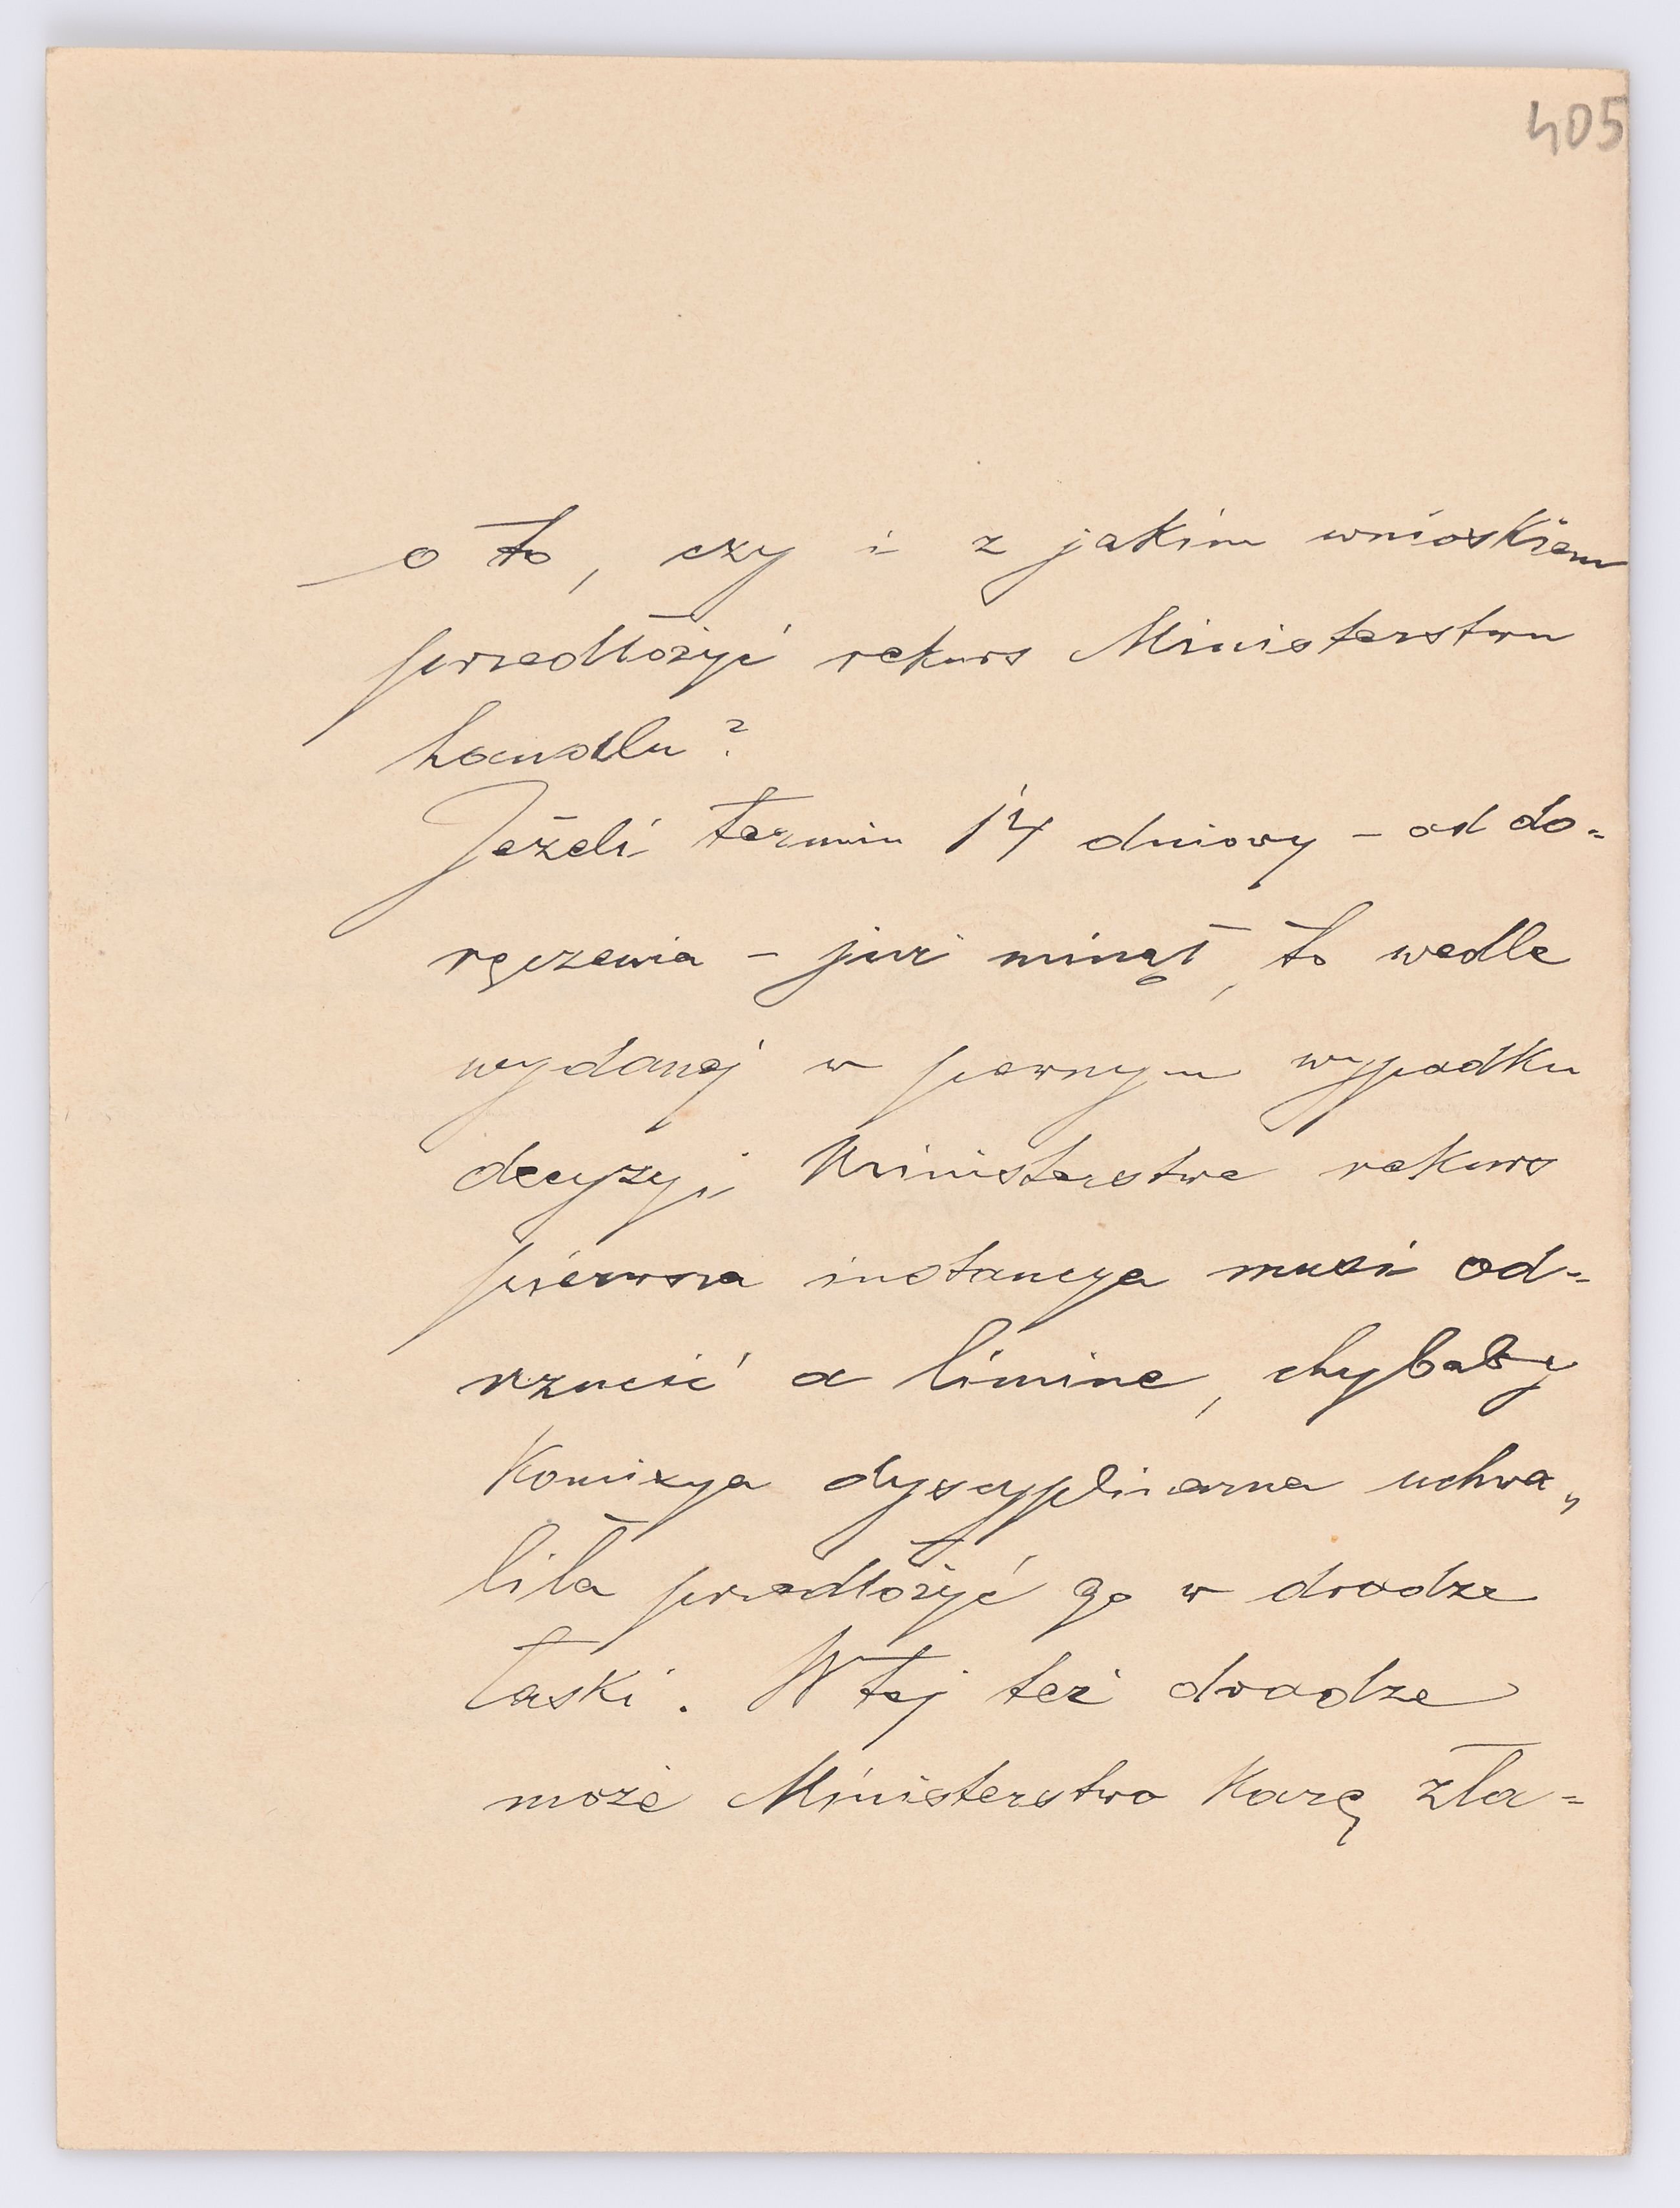 405
o to, czy i z jakim wnioskiem
przedłożyć rekurs Ministerstwu
handlu?
Jeżeli termin 14 dniowy – od do=
ręczenia – już minął, to wedle
wydanej w pewnym wypadku
decyzyi Ministerstwa rekurs
pierwsza instancya musi od=
rzucić a limine, chybaby
Komisya dyscyplinarna uchwa„
liła przedłożyć go w drodze
łaski. W tej też drodze
może Ministerstwo karę zła=